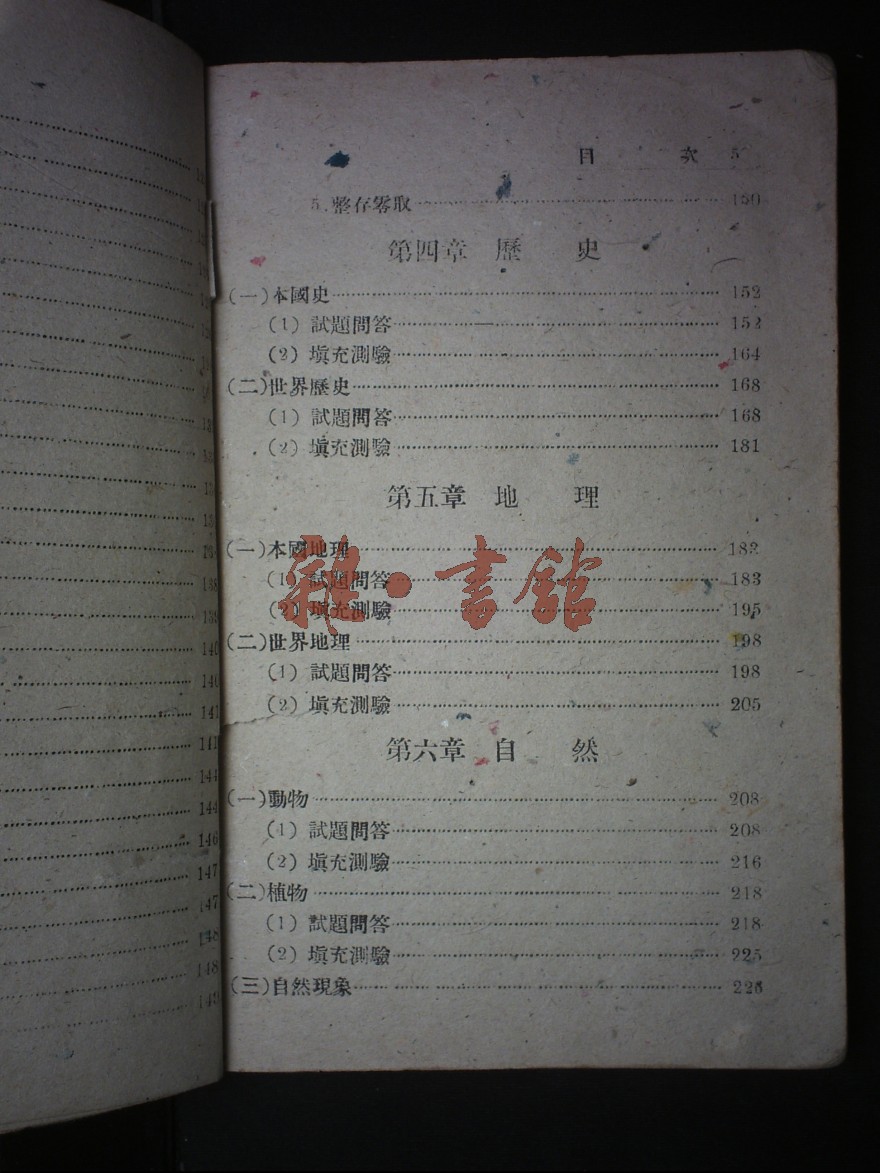 目 次 5
5.整存零取 150
第四章 歷 史
(一)本國史 152
(1) 試題問答 152
(2) 塡充測驗 164
(二)世界歷史 168
(1) 試題問答 168
(2) 塡充測驗 181
第五章 地 理
(一)本國地理 182
(1) 試題問答 183
(2) 塡充測驗 195
(二)世界地理 198
(1) 試題問答 198
(2) 塡充測驗 205
第六章 自 然
(一)動物 208
(1) 試題問答 208
(2) 塡充測驗 216
(二)植物 218
(1) 試題問答 218
(2) 塡充測驗 225
(三)自然現象 226
138
139
140
140
141
141
144
144
146
147
147
148
148
149
書館